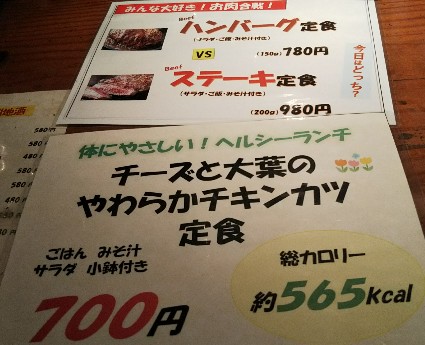 みんな大好き！お肉合戦！
Beef
ハンバーグ定食
(サラダ・ご飯・みそ汁付き)
VS
(150g) 780円
Beef
ステーキ定食
(サラダ・ご飯・みそ汁付き)
(200g) 980円
今日はどっち？
地酒
580円
580
580
480
580
450
体にやさしい！ヘルシーランチ
チーズと大葉の
やわらかチキンカツ
定食
ごはん みそ汁
サラダ 小鉢付き
700円
総カロリー
約565kcal